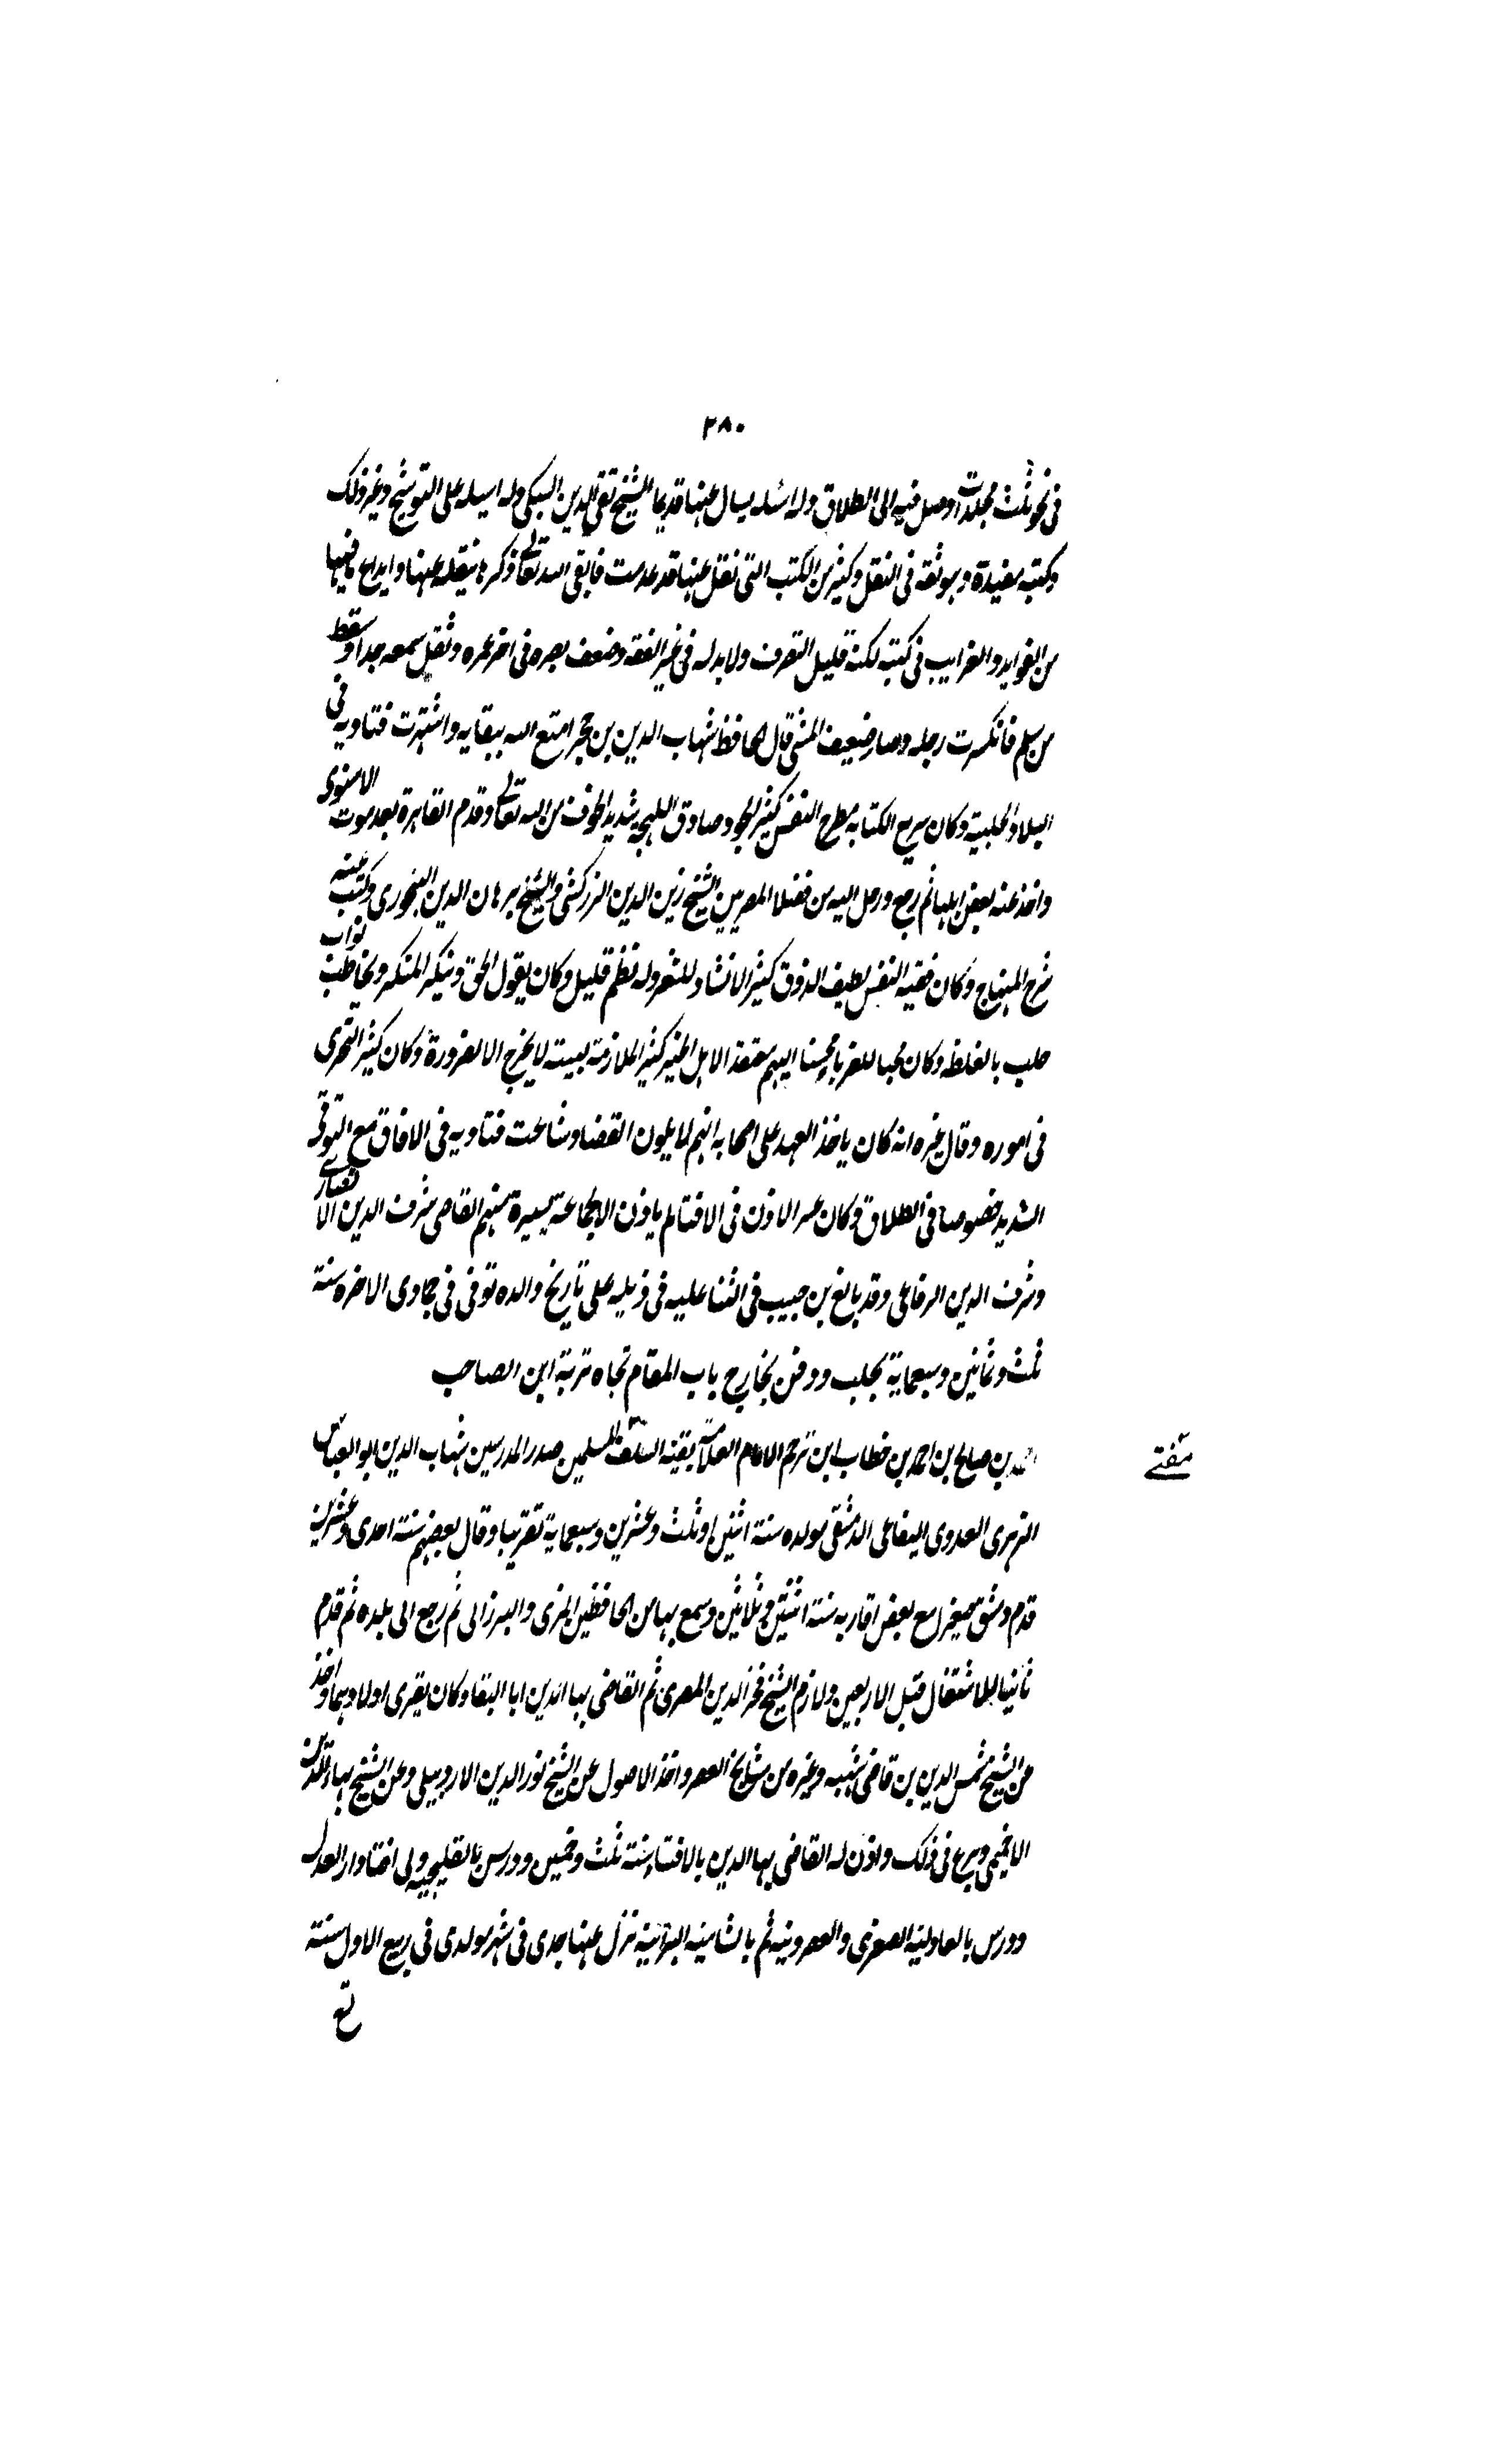 ٢٨٠
فى نحو ثلث مجلدات وصل فيه الى الطلاق وله اسئله يسال عنها قديما الشيخ تقي الدين السبكى وله اسيله على التوشيح وغير ذلك
وكتبه مفيدة وهو ثقة فى النقل وكثير من الكتب التى نقل عنها قد عدمت فابقى الله تعالى ذكرها بنقله عنها وايداع ما فيها
من الفوايد والغرايب فى كتبه لكنه قليل التصرف ولا يد له فى غير الفقه وضعف بصره فى اخر عمره وثقل سمعه جدا وسقط
من سلم فانكسرت رجله وصار ضعيف المشى قال الحافظ شهاب الدين بن حجر امتع الله ببقايه واشتهرت فتاويه فى
البلاد الحلبية وكان سريع الكتابه مطرح النفس كثير الجود صادق اللهجه شديد الخوف من الله تعالى وقدم القاهرة بعد موت الاسنوى
واخذ عنه بعض اهلها ثم رجع ورحل اليه من فضلا المصريين الشيخ زين الدين الزركشى والشيخ برهان الدين البيجورى وكتب عنه
شرح المنهاج وكان فقيه النفس لطيف الذوق كثير الانشاد للشعر وله نظم قليل وكان يقول الحق وينكر المنكر ويخاطب نواب
حلب بالغلظ وكان محبا للغربا محسنا اليهم معتقدا لاهل الخير كثير الملازمة لبيته لا يخرج الا لضرورة وكان كثير التحرى
فى اموره وقال غيره انه كان ياخذ العهد على اصحابه انهم لا يلون القضا وشاعت فتاويه فى الافاق مع التوقى
الشديد خصوصا فى الطلاق وكان عسر الاذن فى الافتا لم ياذن الا لجماعة يسيرة منهم القاضى شرف الدين الانصارى
وشرف الدين الرفاعى وقد بالغ بن حبيب فى الثنا عليه فى ذيله على تاريخ والده توفى فى جمادى الاخره سنة
ثلث وثمانين وسبعماية بحلب ودفن بخارج باب المقام تجاه تربة ابن الصاحب
احمد بن صالح بن احمد بن خطاب ابن ترجم الامام العلامة بقية السلف مفتى المسلمين صدر المدرسين شهاب الدين ابو العباس
الزهرى العدوى البقاعى الدمشقى مولده سنة اثنين او ثلث وعشرين وسبعماية تقريبا وقال بعضهم سنة احدى وعشرين
قدم دمشق صغيرا مع بعض اقاربه سنة اثنتين وثلاثين وسمع بها من الحافظين المزى والبرزالى ثم رجع الى بلده ثم قدم
ثانيا للاشتغال قبل الاربعين ولازم الشيخ فخر الدين المصرى ثم القاضى بها الدين ابا البقا وكان يقرى اولادهما واخذ
عن الشيخ شمس الدين بن قاضى شهبه وغيره من مشايخ العصر واخذ الاصول عن الشيخ نور الدين الاردبيلى وعن الشيخ بهاء الدين
الاخميمى وبرع فى ذلك واذن له القاضى بها الدين بالافتاء سنة ثلث وخمسين ودرس بالقليجيه وولى افتا دار العدل
ودرس بالعادلية الصغرى والعصرونيه ثم بالشاميه البرانية نزل عنها جدى فى شهر مولدى فى ربيع الاول سنة